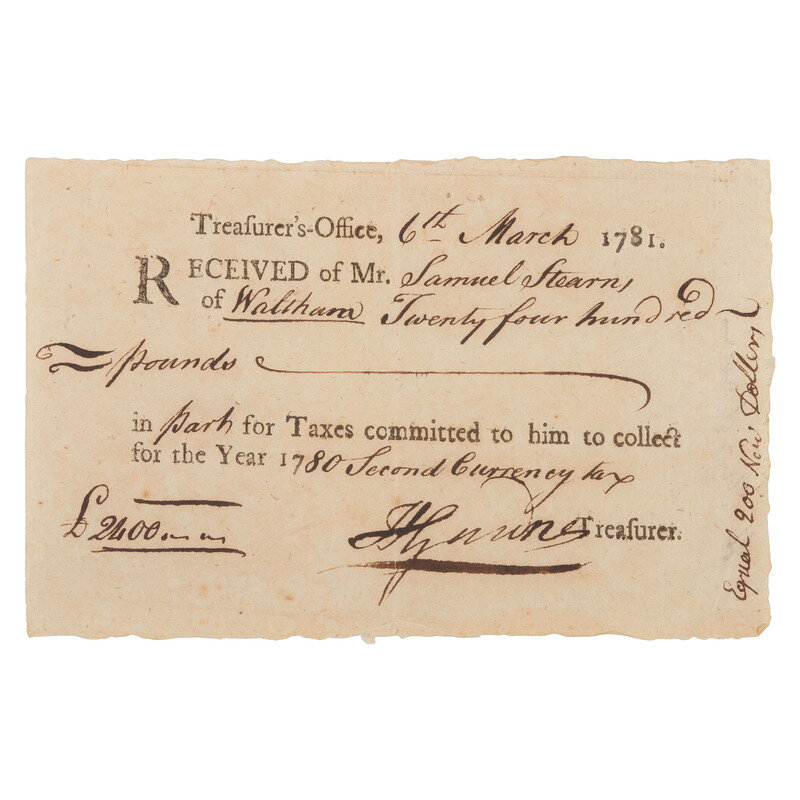 Treaſurer's-Office, 6th March 1781.
RECEIVED of Mr. Samuel Stearns
of Waltham Twenty four hundred
pounds
in part for Taxes committed to him to collect
for the Year 1780 Second Currency tax
£2400
HGardner Treaſurer.
Equal 200 New Dollers